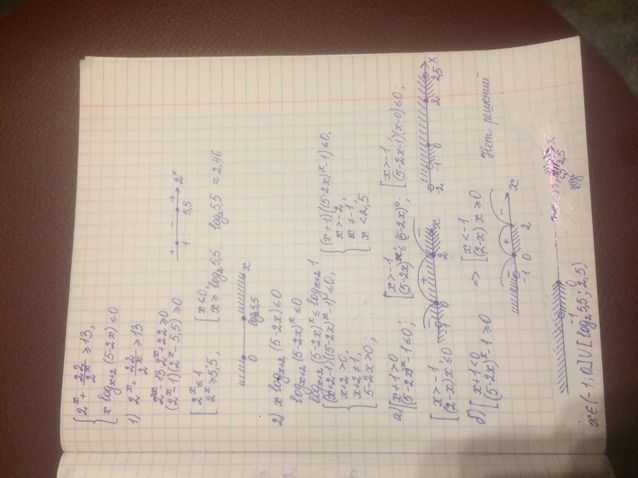 { 2^x + 22/2^x ≥ 13,
x log_{x+2} (5-2x) ≤ 0
1) 2^x + 22/2^x ≥ 13
2^{2x} - 13·2^x + 22 ≥ 0
(2^x - 1)(2^x - 5,5) ≥ 0
[ 2^x ≤ 1
2^x ≥ 5,5,
[ x ≤ 0,
x ≥ log₂ 5,5
log₂ 5,5 ≈ 2,46
+ 1 - 5,5 + 2^x
0 log₂5,5 x
2) x log_{x+2} (5-2x) ≤ 0
log_{x+2} (5-2x)^x ≤ 0
log_{x+2} (5-2x)^x ≤ log_{x+2} 1
{ (x+2-1)((5-2x)^x - 1) ≤ 0,
x+2 > 0,
x+2 ≠ 1,
5-2x > 0;
{ (x+1)((5-2x)^x - 1) ≤ 0,
x > -2,
x ≠ -1,
x < 2,5
a) [ x+1 > 0
(5-2x)^x - 1 ≤ 0;
[ x > -1
(5-2x)^x ≤ (5-2x)^0;
[ x > -1
(5-2x-1)(x-0) ≤ 0;
[ x > -1
(2-x)x ≤ 0
б) [ x+1 < 0
(5-2x)^x - 1 ≥ 0
⇒ [ x < -1
(2-x) x ≥ 0
-1 0 2 x
Нет решений
x ∈ (-1; 0] ∪ [log₂5,5; 2,5)